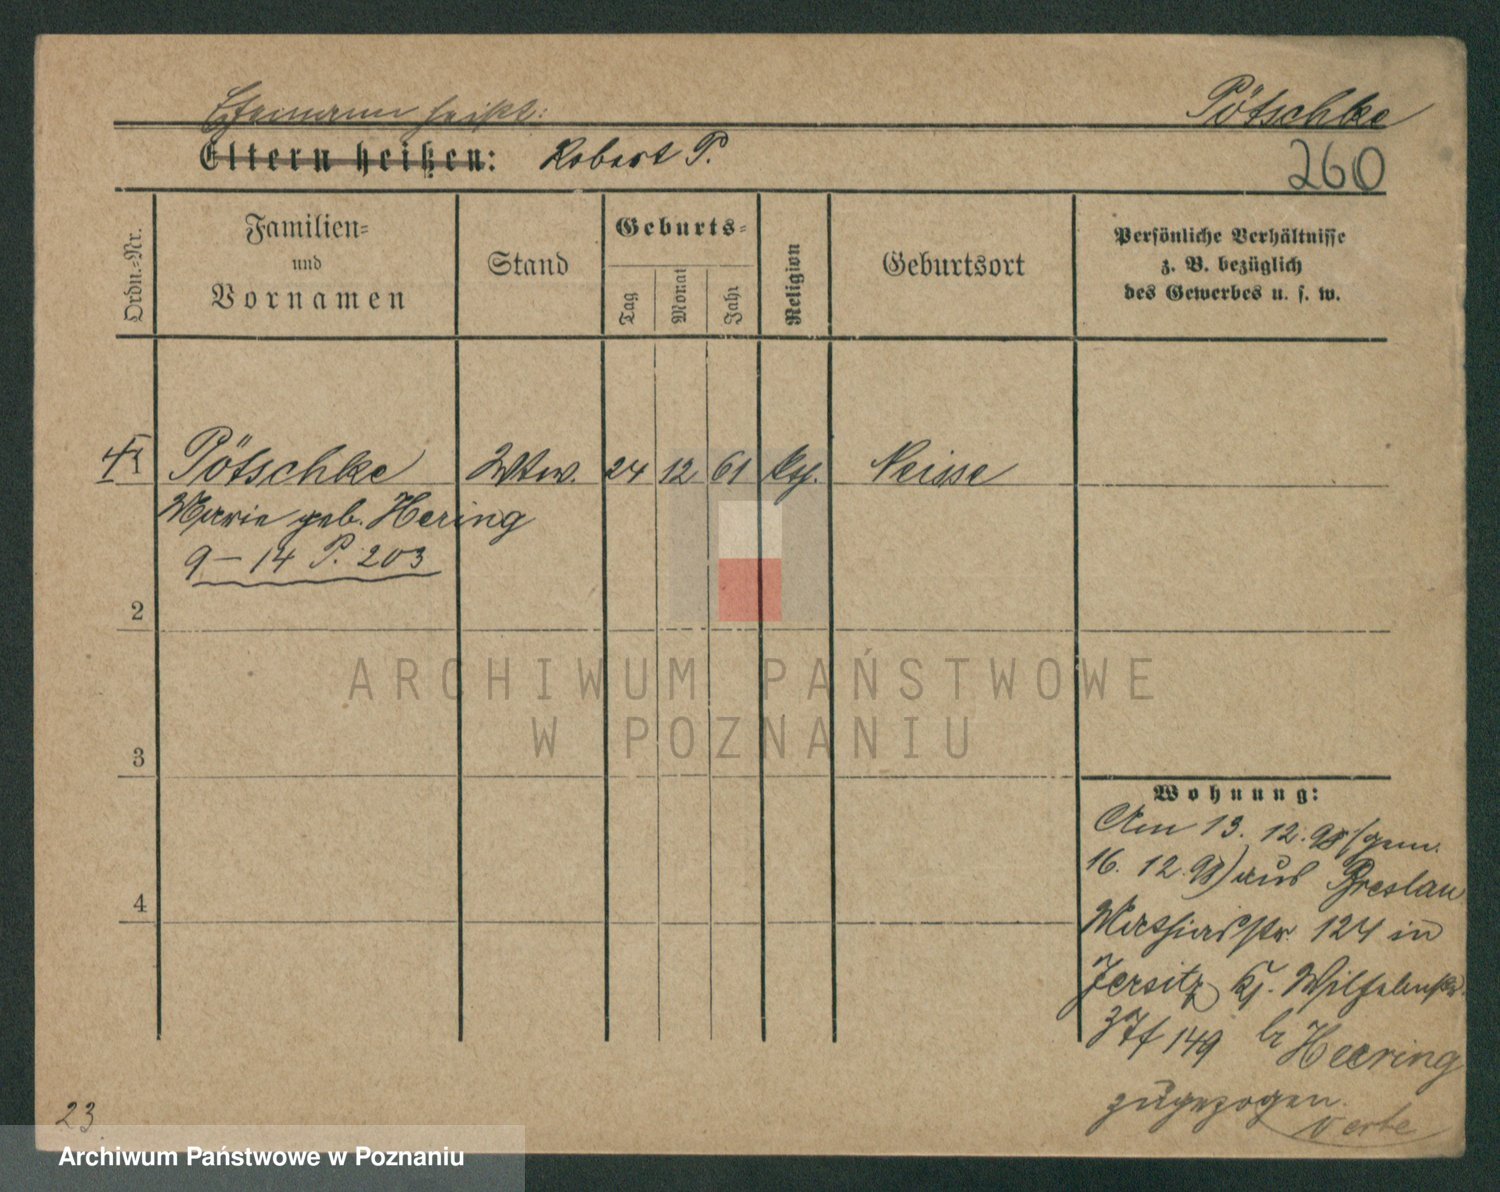 Ehemann heißt:
Pötschke
Eltern heißen: Robert P.
260
Ordn.-Nr.
Familien-
und
Vornamen
Stand
Geburts-
Tag
Monat
Jahr
Religion
Geburtsort
Persönliche Verhältnisse
z. B. bezüglich
des Gewerbes u. s. w.
Pötschke Wtw. 24 12 61 Neisse
Marie geb. Hering
9 – 14 P. 203
2
3
4
ARCHIWUM PAŃSTWOWE
W POZNANIU
Wohnung:
Am 13. 12. 98 (gem.
16. 12. 98) aus Breslau
Mathiasstr 124 in
Jersitz Wilhelmstr.
149 br Heering
zugezogen.
verte
23
Archiwum Państwowe w Poznaniu